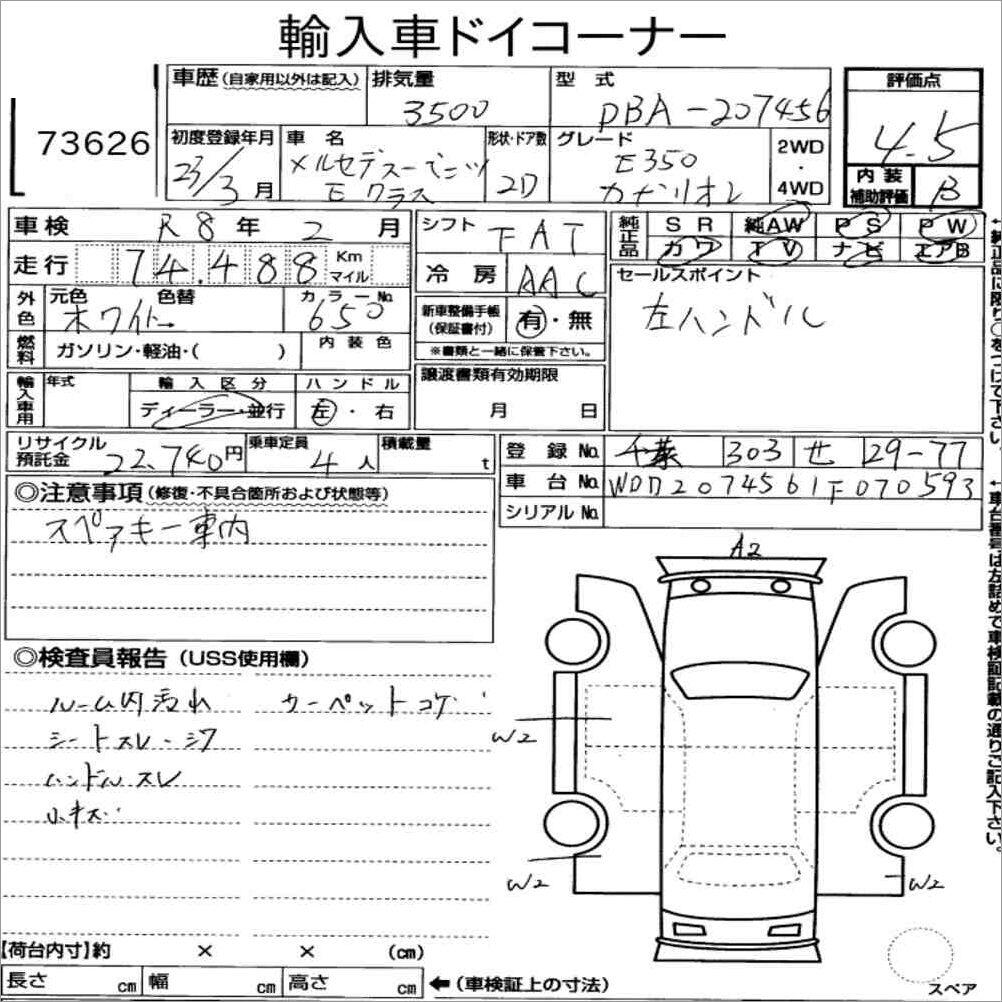 輸入車ドイコーナー
73626
車歴(自家用以外は記入) 排気量 3500 型式 DBA-207456
評価点 4.5
初度登録年月 23/3月 車名 メルセデス-ベンツ Eクラス 形状・ドア数 2D グレード E350 カブリオレ 2WD・4WD
内装補助評価 B
車検 R8年 2月 シフト FAT
純正品 SR 純AW PS PW
カワ TV ナビ エアB
走行 74.488 Km マイル
冷房 AAC
セールスポイント
左ハンドル
外色 元色 ホワイト 色替 カラーNo. 650
新車整備手帳(保証書付) 有・無
※書類と一緒に保管下さい。
燃料 ガソリン・軽油・( ) 内装色
譲渡書類有効期限
月 日
輸入車用 年式 輸入区分 ハンドル
ディーラー・並行 左・右
リサイクル預託金 22.740円 乗車定員 4人 積載量 t
登録No. 千葉 303 せ 29-77
車台No. WDD2074561F070593
シリアルNo.
◎注意事項(修復・不具合箇所および状態等)
スペアキー車内
◎検査員報告(USS使用欄)
ルーム内汚れ カーペットコゲ
シートスレ・シワ
ハンドルスレ
小キズ
A2
W2
W2
W2
【荷台内寸】約 × × (cm)
長さ cm 幅 cm 高さ cm ←(車検証上の寸法)
スペア
←純正品に限り○をつけて下さい。
←車台番号は左詰めで車検証記載の通りご記入下さい。